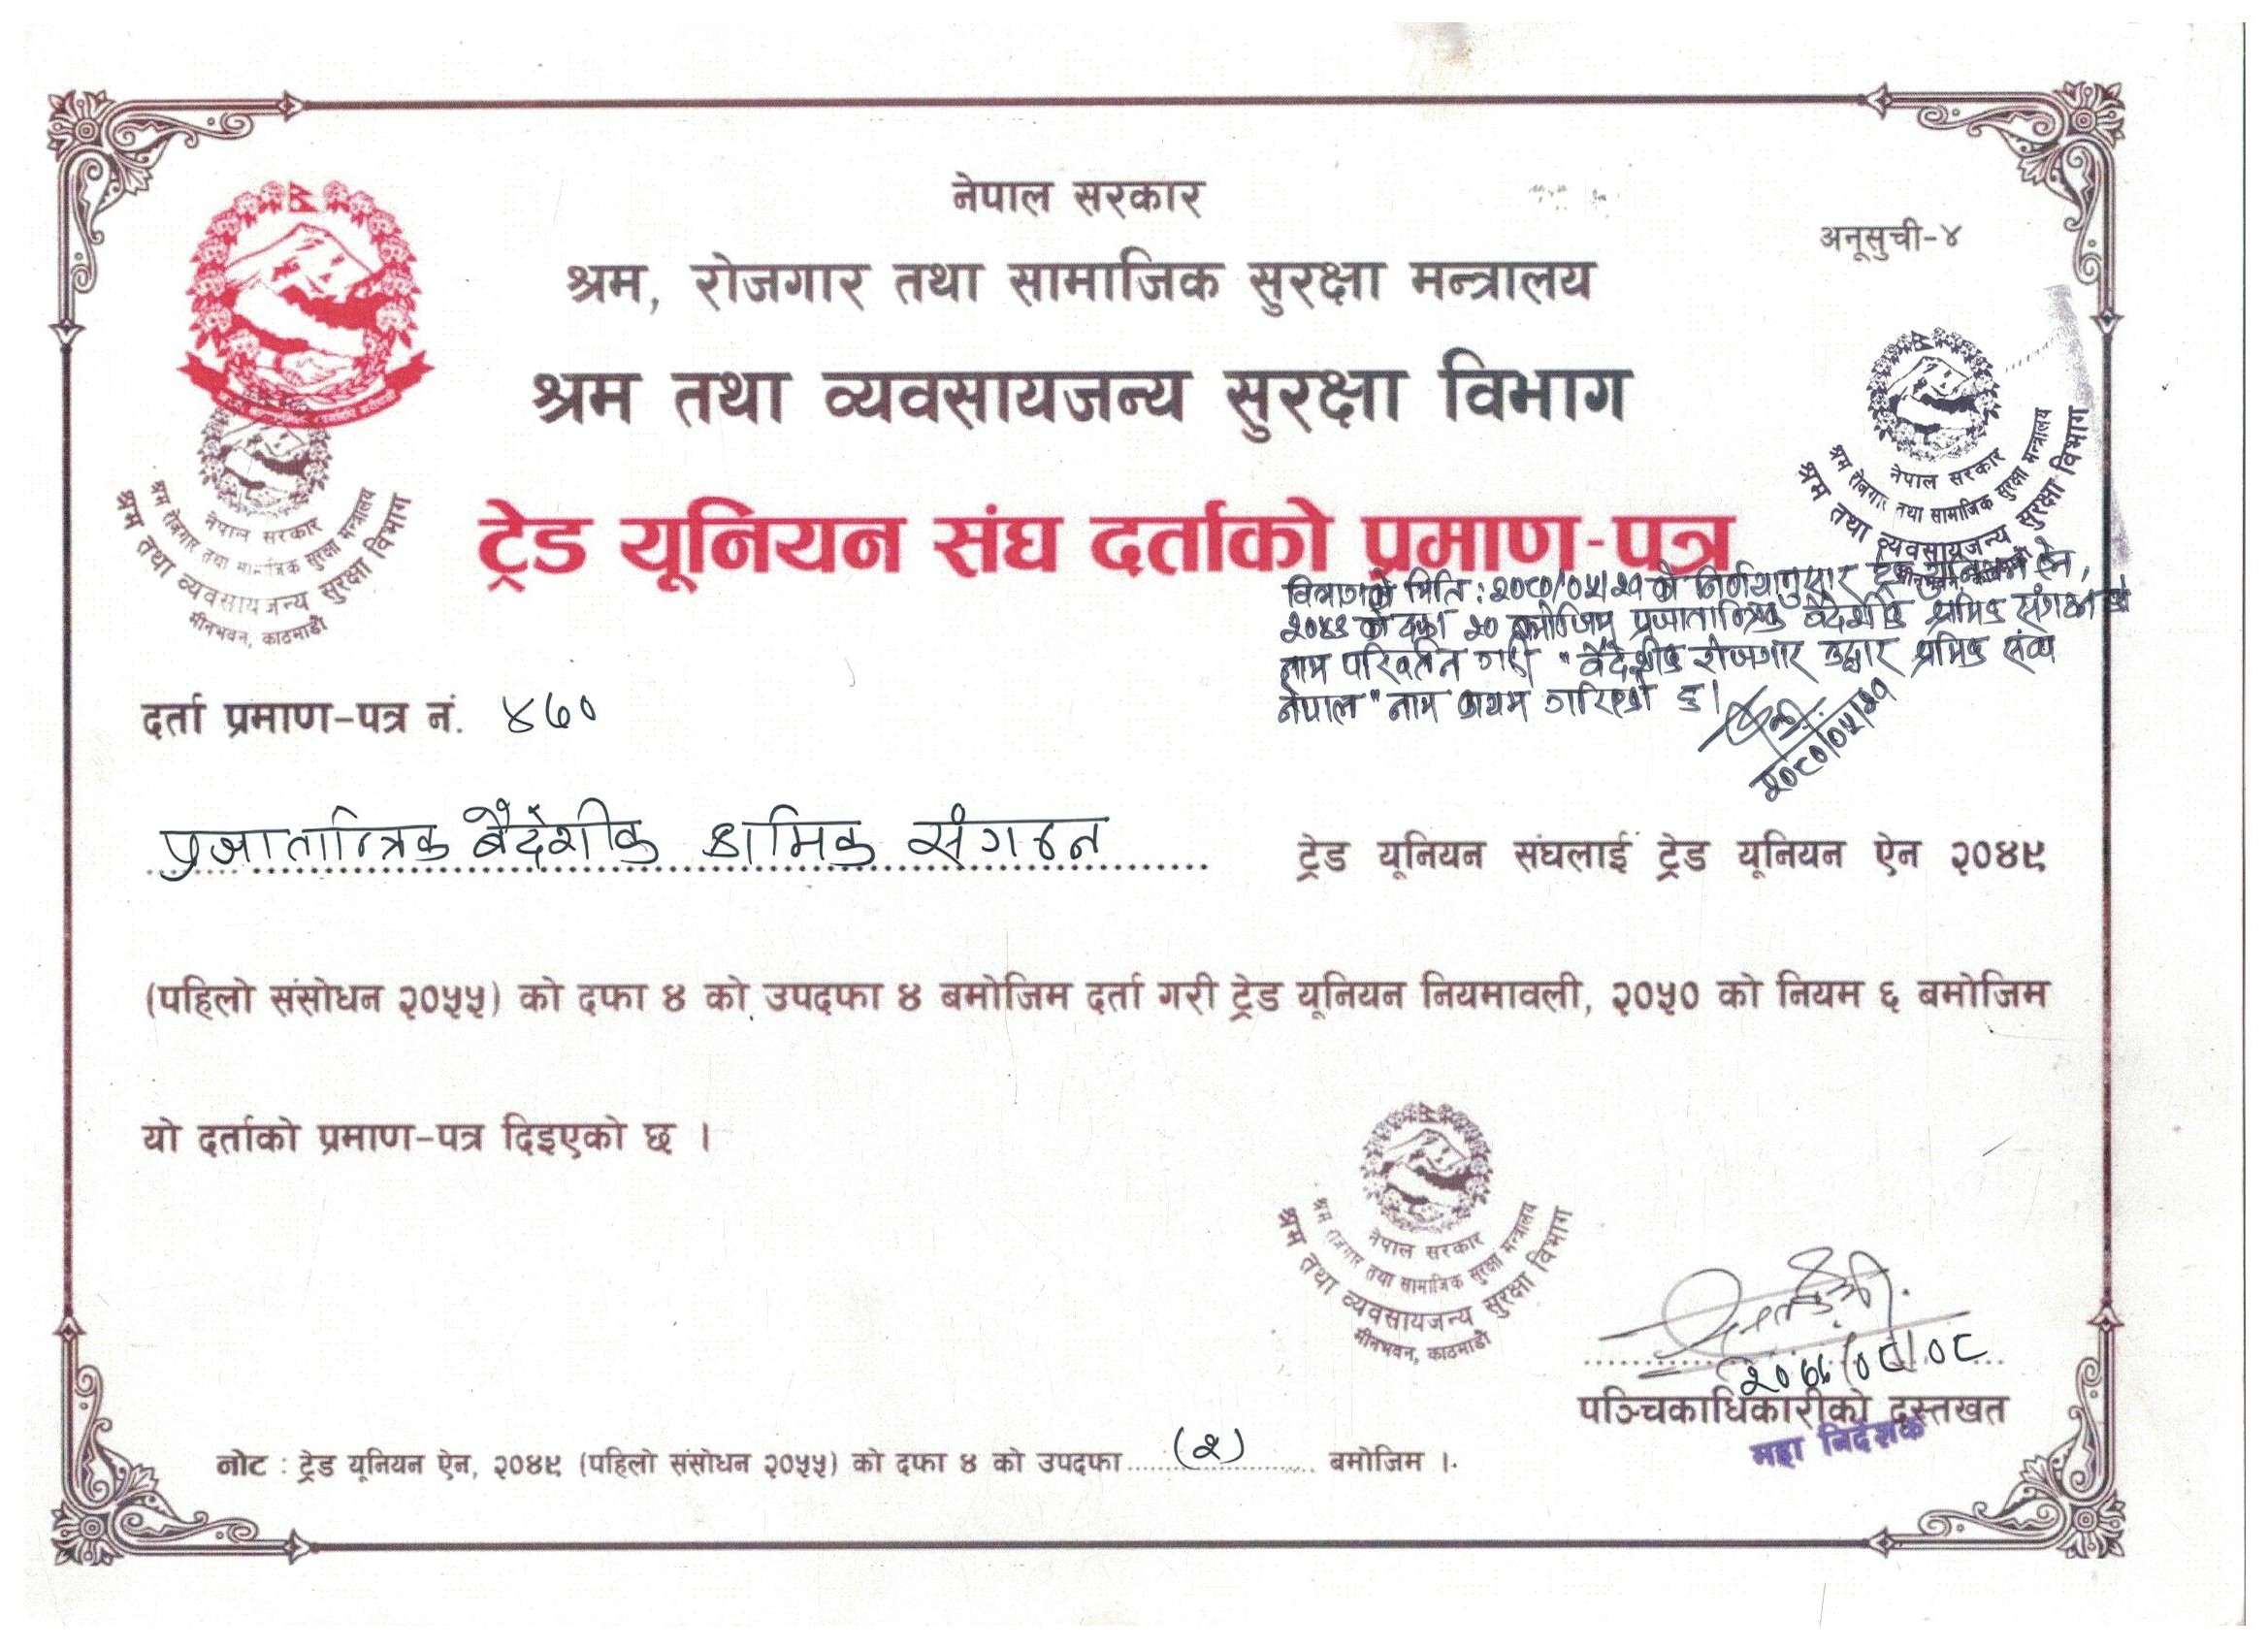 नेपाल सरकार
अनूसुची-४
श्रम, रोजगार तथा सामाजिक सुरक्षा मन्त्रालय
श्रम तथा व्यवसायजन्य सुरक्षा विभाग
ट्रेड यूनियन संघ दर्ताको प्रमाण-पत्र
नेपाल सरकार
श्रम रोजगार तथा सामाजिक सुरक्षा मन्त्रालय
श्रम तथा व्यवसायजन्य सुरक्षा विभाग
मीनभवन, काठमाडौं
नेपाल सरकार
श्रम रोजगार तथा सामाजिक सुरक्षा मन्त्रालय
श्रम तथा व्यवसायजन्य सुरक्षा विभाग
विभागको मिति : २०८०/०५/२१ को निर्णयानुसार ट्रेड यूनियन ऐन,
२०४९ को दफा २० बमोजिम प्रजातान्त्रिक बैदेशीक श्रमिक संगठन को
नाम परिवर्तन गरी "बैदेशीक रोजगार उद्धार श्रमिक संघ
नेपाल" नाम कायम गरिएको छ।
२०८०/०५/२१
दर्ता प्रमाण-पत्र नं. ४७०
प्रजातान्त्रिक बैदेशीक श्रमिक संगठन ट्रेड यूनियन संघलाई ट्रेड यूनियन ऐन २०४९
(पहिलो संसोधन २०५५) को दफा ४ को उपदफा ४ बमोजिम दर्ता गरी ट्रेड यूनियन नियमावली, २०५० को नियम ६ बमोजिम
यो दर्ताको प्रमाण-पत्र दिइएको छ ।
नेपाल सरकार
श्रम रोजगार तथा सामाजिक सुरक्षा मन्त्रालय
श्रम तथा व्यवसायजन्य सुरक्षा विभाग
मीनभवन, काठमाडौं
पञ्चिकाधिकारीको दस्तखत
महा निर्देशक
नोट : ट्रेड यूनियन ऐन, २०४९ (पहिलो संसोधन २०५५) को दफा ४ को उपदफा (२) बमोजिम ।